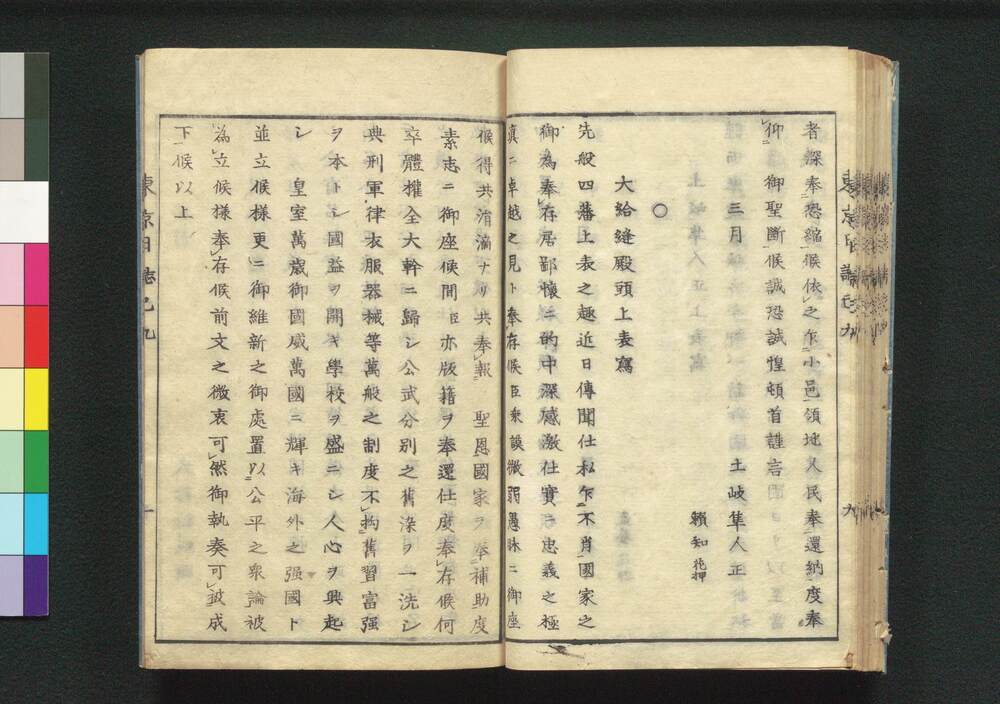 者深奉恐縮候依之乍小邑領地人民奉還納度奉
仰 御聖斷候誠恐誠惶頓首謹言
三月 土岐隼人正
賴知花押
○
大給縫殿頭上表寫
先般四藩上表之趣近日傳聞仕私乍不肖國家之
御為奉存居鄙懷ニ的中深感激仕實ニ忠義之極
眞ニ卓越之見ト奉存候臣乘謨微弱愚昧ニ御座
候得共涓滴ナリ共奉報 聖恩國家ヲ奉補助度
素志ニ御座候間臣亦版籍ヲ奉還仕度奉存候何
卒體權全大幹ニ歸シ公武分別之舊染ヲ一洗シ
典刑軍律衣服器械等萬般之制度不拘舊習富强
ヲ本トシ國益ヲ開キ學校ヲ盛ニシ人心ヲ興起
シ 皇室萬歲御國威萬國ニ輝キ海外之强國ト
並立候樣更ニ御維新之御處置以公平之衆論被
為立候樣奉存候前文之微衷可然御執奏可被成
下候以上
東京日誌己九
一
東京日誌己九
九